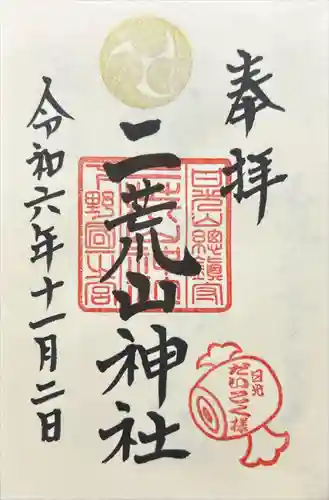 奉拝
二荒山神社
令和六年十一月二日
日光
だいこく様